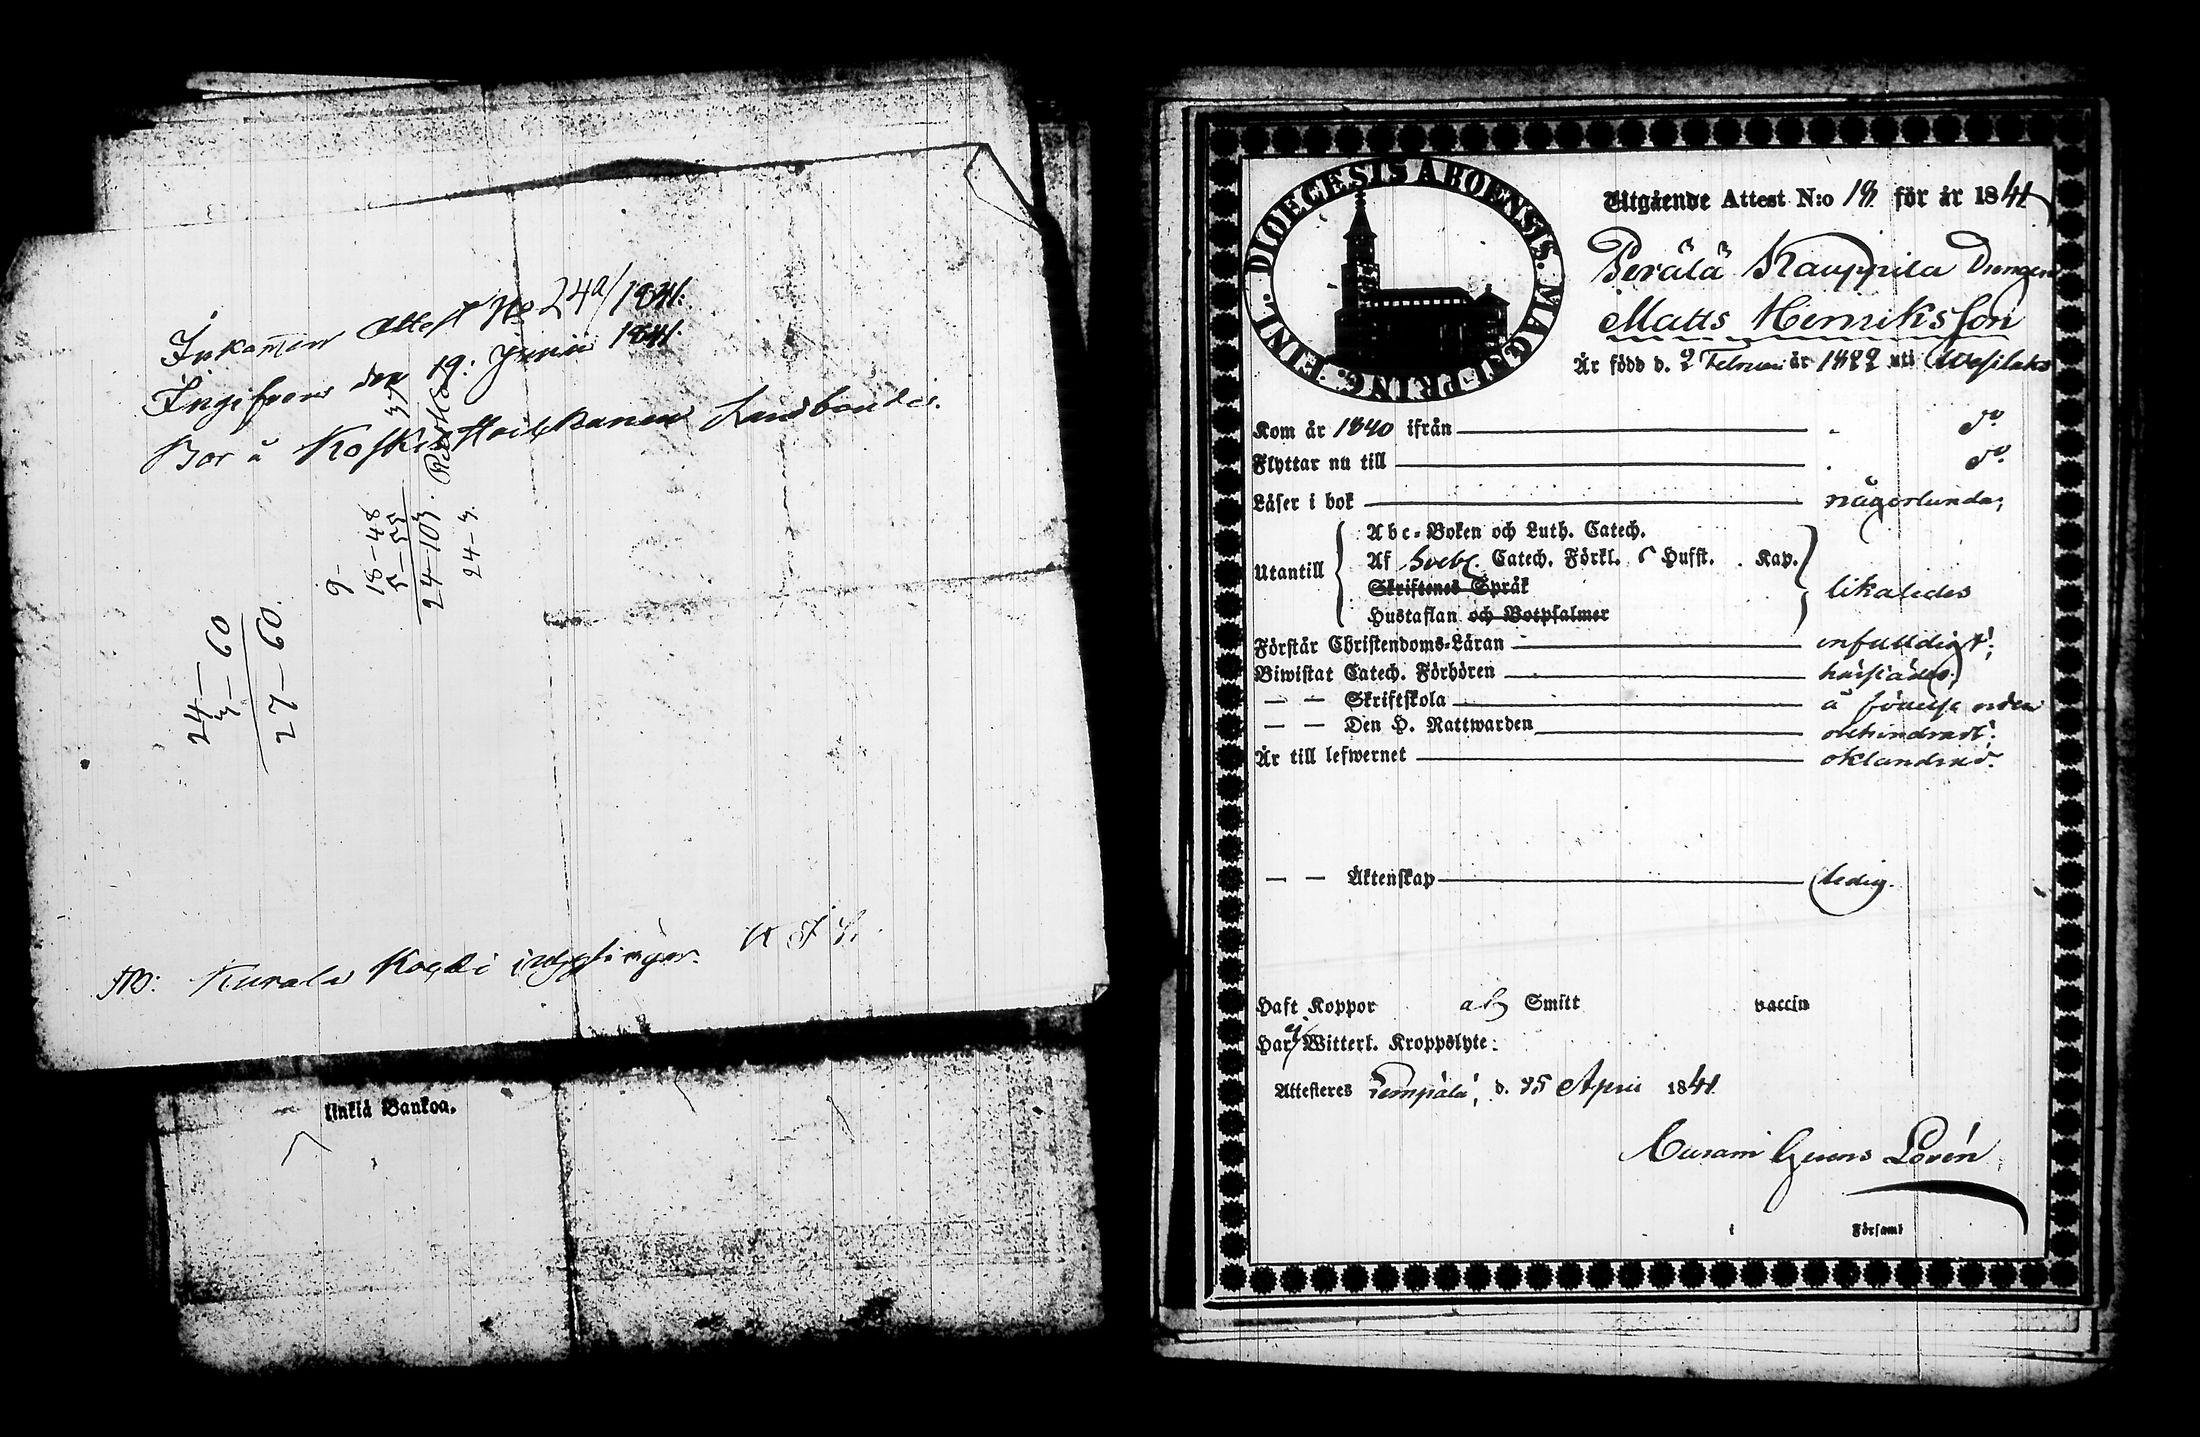 Inkommen Attest No 24a/1841.
Ingifven den 19: Junii 1841.
Bor å Koskis Landbondes.
9-
18-48
5-55
24-103.
24-3.
37
24-
3-60
27-60.
NB: Kurala Koski
linkiä Bankoa.
DIOECESIS ABOENSIS. MAGNI PRING. FINL.
Utgående Attest N:o 18 för år 1841
Perälä Kauppila Drengen
Matts Henriksson
Är född d. 2 Februari år 1822 uti Wesilaks
Kom år 1840 ifrån do
Flyttar nu till do.
Läser i bok någorlunda;
Utantill
Abc-Boken och Luth. Catech.
Af Sveb. Catech. Förkl. 5 Hufst. . Kap.
Skriftenes Språk
Hustaflan och Botpsalmer
likaledes
Förstår Christendoms-Läran enfalldigt;
Biwistat Catech. Förhören härstädes;
— — Skriftskola å
— — Den H. Nattwarden obehindrad:
Är till lefwernet oklandrad.
— — Äktenskap ledig.
Haft Koppor af Smitt vaccin
Har ej Witterl. Kroppslyte:
Attesteres Lempälä, d. 25 April 1841
Curam Gerens Lovén
i Församl